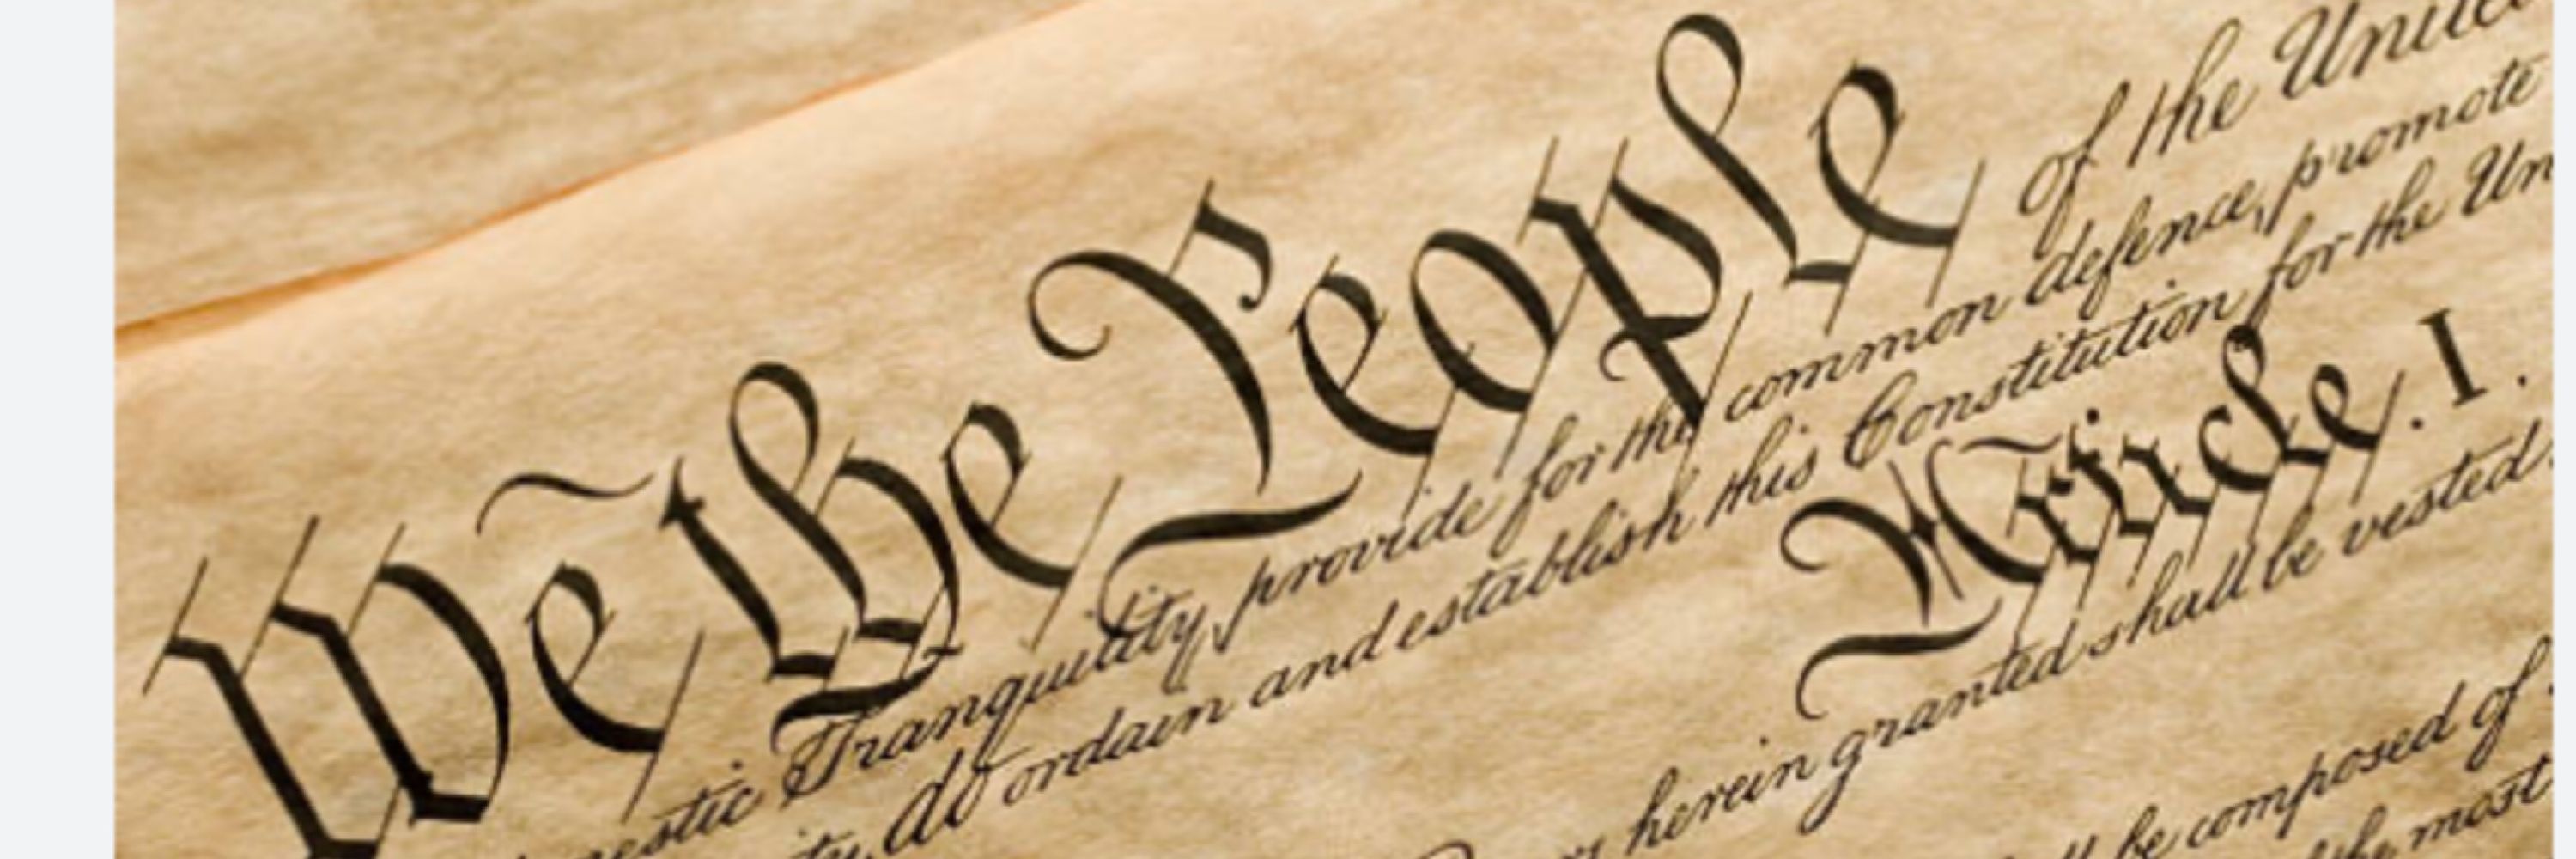 We the People of the United
estic Tranquility, provide for the common defence, promote
ty, do ordain and establish this Constitution for the Un
Article. I.
herein granted shall be vested
be composed of
the most